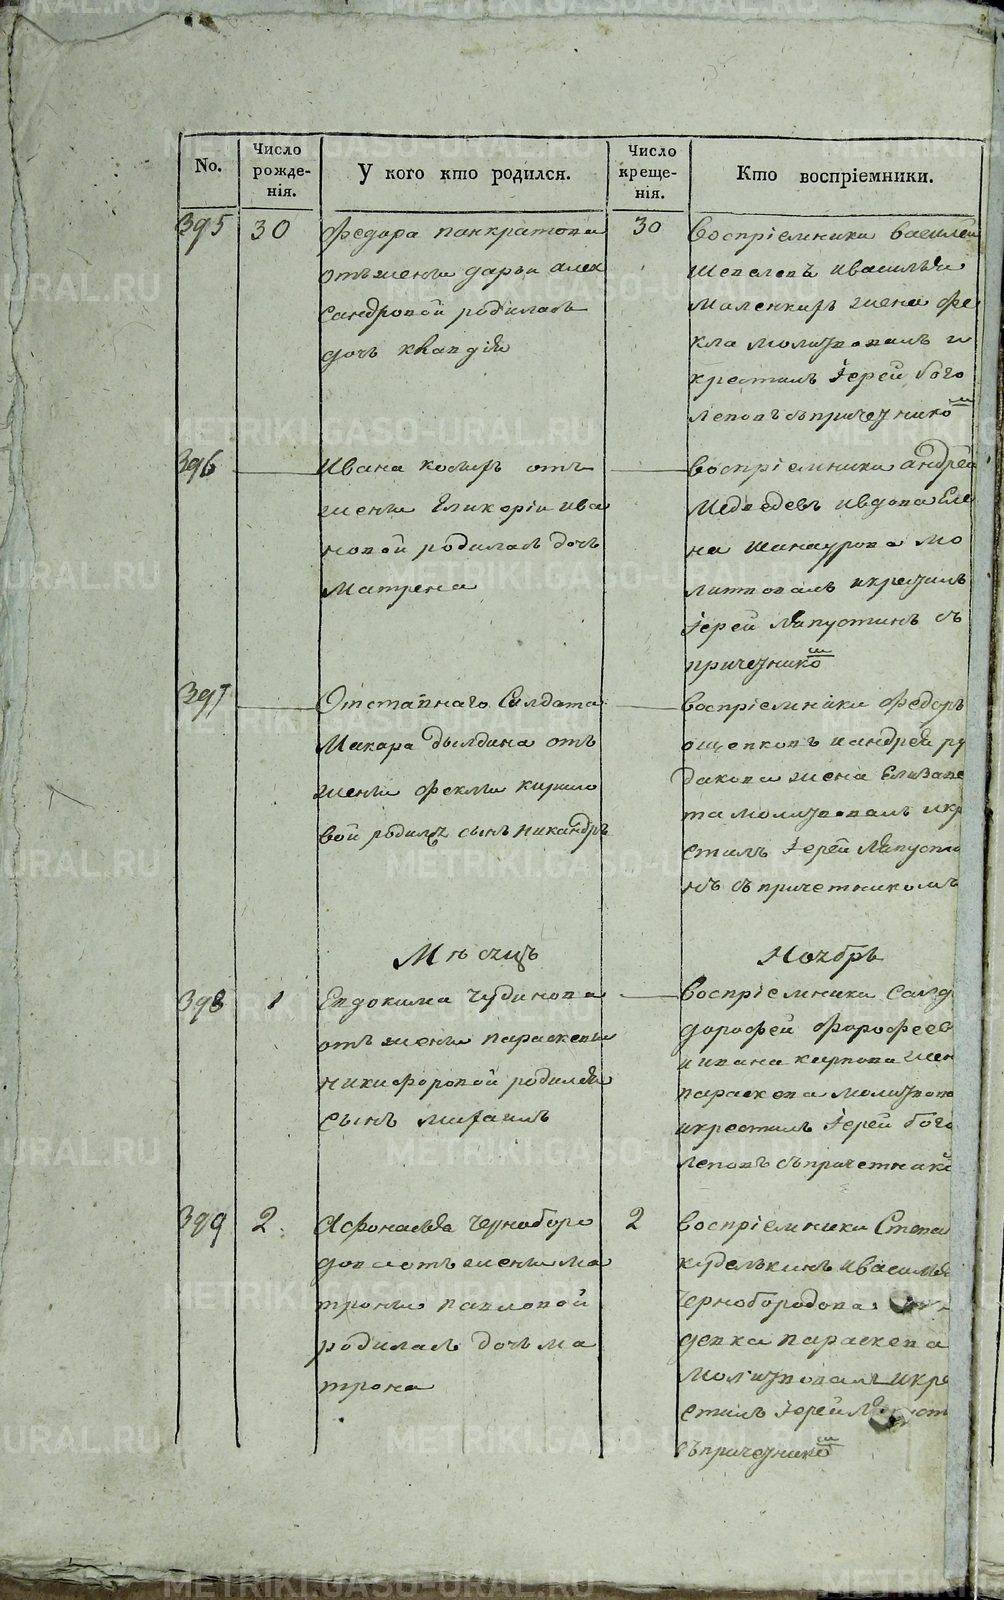 No.
Число рожде-нія.
У кого кто родился.
Число креще-нія.
Кто воспріемники.
395 30
Федора панкратова
отъ жены дарьи алек
сандровой родилась
дочь клавдія
30
воспріемники василей
шевелевъ ивасилья
маленкихъ жена фе
кла молитвовалъ и
крестилъ Іерей бого
леповъ съпричетнико м
396
Ивана косыхъ отъ
жены Гликеріи ива
новой родилась дочь
матрена
воспріемники андрей
Медведевъ ивдова Еле
на шанаурова мо
литвовалъ икрестилъ
Іерей Лапустинъ съ
причетнико м
397
Отставнаго Салдата
Макара дылдина отъ
жены феклы кирило
вой родился сынъ никандръ
воспріемники Федоръ
ощепковъ иандрей ру
дакова жена Елизаве
та молитвовалъ икр
стилъ Іерей Лапусти
нъ съ причетникомъ
Мѣсяцъ Ноябрь
398 1
Евдокима Чудинова
отъ жены параскевы
никифоровой родился
сынъ михаилъ
воспріемники Салд
дорофей дорофеев
иивана карпова жен
параскева молитвова
икрестилъ Іерей бого
леповъ съпричетнико
399 2
Афонасья Чернобор­о
дова отъ жены ма
троны павловой
родилась дочь ма
трона
2
воспріемники Степа
куделькинъ ивасилья
Чернобородова
девка параскева
молитвовалъ икре
стилъ Іерей
съпричетнико м